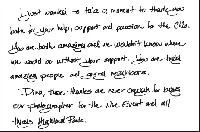 I just wanted to take a moment to thank you
both for your help, support and passion for the
You are both amazing and we wouldn't know where
we would be without your support. You are both
amazing people and great neighbours.
Dina, Tina, thanks are never enough for being
our photographer for the Live Event and all
Highland Park.